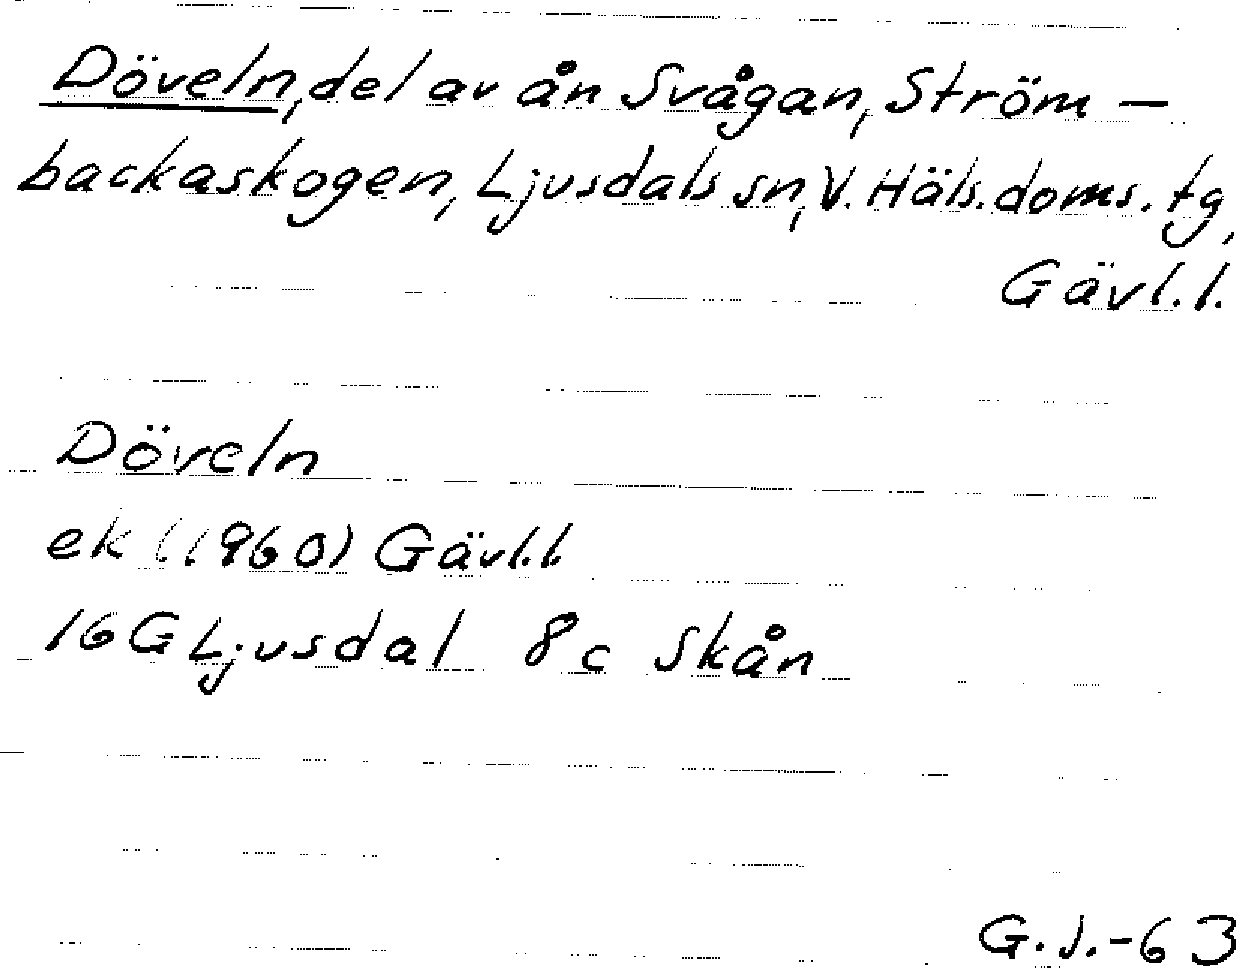 Döveln, del av ån Svågan, Ström-
backaskogen, Ljusdals sn, V. Häls. doms. tg,
Gävl. l.
Döveln
ek (1960) Gävl.l.
16G Ljusdal 8c Skån
G.J.-63